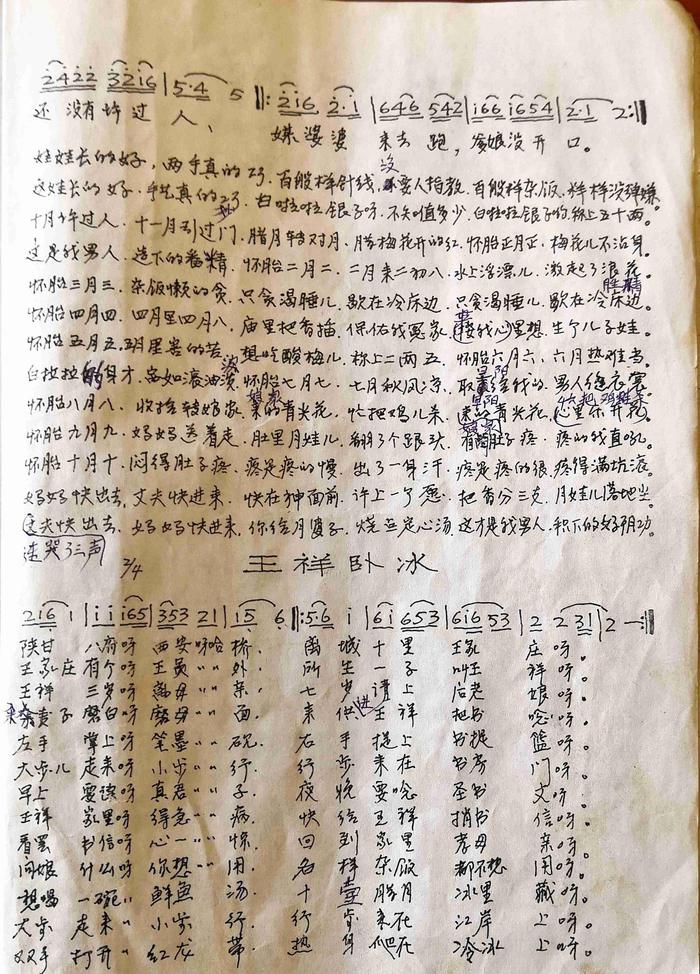 2422 3216 | 5·4 5 ‖: 216 2·1 | 646 542 | 166 1654 | 2·1 2 :‖
还没有许过人、 媒婆婆来去跑，爹娘没开口。
娃娃长的好，两手真的巧、百般样针线，没要人指教、百般样杂饭，样样没弹嫌。
这娃长的好、手艺真的巧、白啦啦银子呀、不知值多少、白啦啦银子约、称上五十两。
十月许过人、十一月引过门、腊月转对月、腊梅花开的红、怀胎正月正、梅花儿不沾身。
这是我男人、造下的 怀胎二月二、二月来二初八、水上浮漂儿、激起了浪花。
怀胎三月三、杂饭懒的贪、只贪渴睡儿、歇在冷床边、只贪渴睡儿、歇在冷床边。
怀胎四月四、四月里四月八、庙里把香插、保佑我冤家、接我心里想、生个儿子娃。
怀胎五月五、 害的苦、想吃酸梅儿、称上二两五、怀胎六月六、六月热难当。
怀胎七月七、七月秋风凉、 男人
怀胎八月八、收拾转娘家、 青米花、忙把鸡儿杀、 青米花、心里不开花。
怀胎九月九、妈妈送着走、肚里月娃儿、翻了个跟头、 肚子疼、疼的我直吼。
怀胎十月十、闷得肚子疼、疼是疼的慢、出了一身汗、疼是疼的很、疼得满坑滚。
妈妈快出去，丈夫快进来、快在神面前、许上一个愿、把香分三支、月娃儿落地上。
丈夫快出去、妈妈快进来，你给月婆子、烧点定心汤、这才是我男人、积下的好阴功。
连哭了三声
2/4 王祥卧冰
216 1 | 1 1 165 | 353 21 | 15 6 ‖: 5·6 1 | 61 653 | 616 53 | 2 2 31 | 2 — :‖
陕甘 八府呀 西安呀哈 桥、 离城 十里 王家 庄呀。
王家庄 有个呀 王员 〃〃 外、 所生 一子 叫王 祥呀。
王祥 三岁呀 离母 〃〃 亲、 七岁 读上 后老 娘呀。
麦子 磨白呀 磨毋 〃〃 面、 来供 王祥 把书 念呀。
左手 掌上呀 笔墨 〃〃 砚、 右手 提上 书提 篮呀。
大步儿 走来呀 小步 〃〃 行、 行步 来在 书房 门呀。
早上 要读呀 真君 〃〃 子、 夜晚 要念 圣书 文呀。
王祥 家里呀 得急 〃〃 病、 快给 王祥 捎书 信呀。
看罢 书信呀 心一 〃〃 惊、 回到 家里 孝母 亲呀。
问娘 什么呀 你想 〃〃 用、 各样 杂饭 都不想 用呀。
想喝 一碗〃 鲜鱼 汤、 十壹 腊月 冰里 藏呀。
大步 走来〃 小步 行、 行步 来在 江岸 上呀。
双手 打开〃 红龙 带、 热身 爬在 冷冰 上呀。